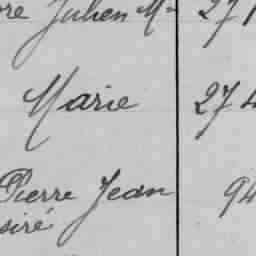 re Julien Mª 271
Marie 274
Pierre Jean 94
siré